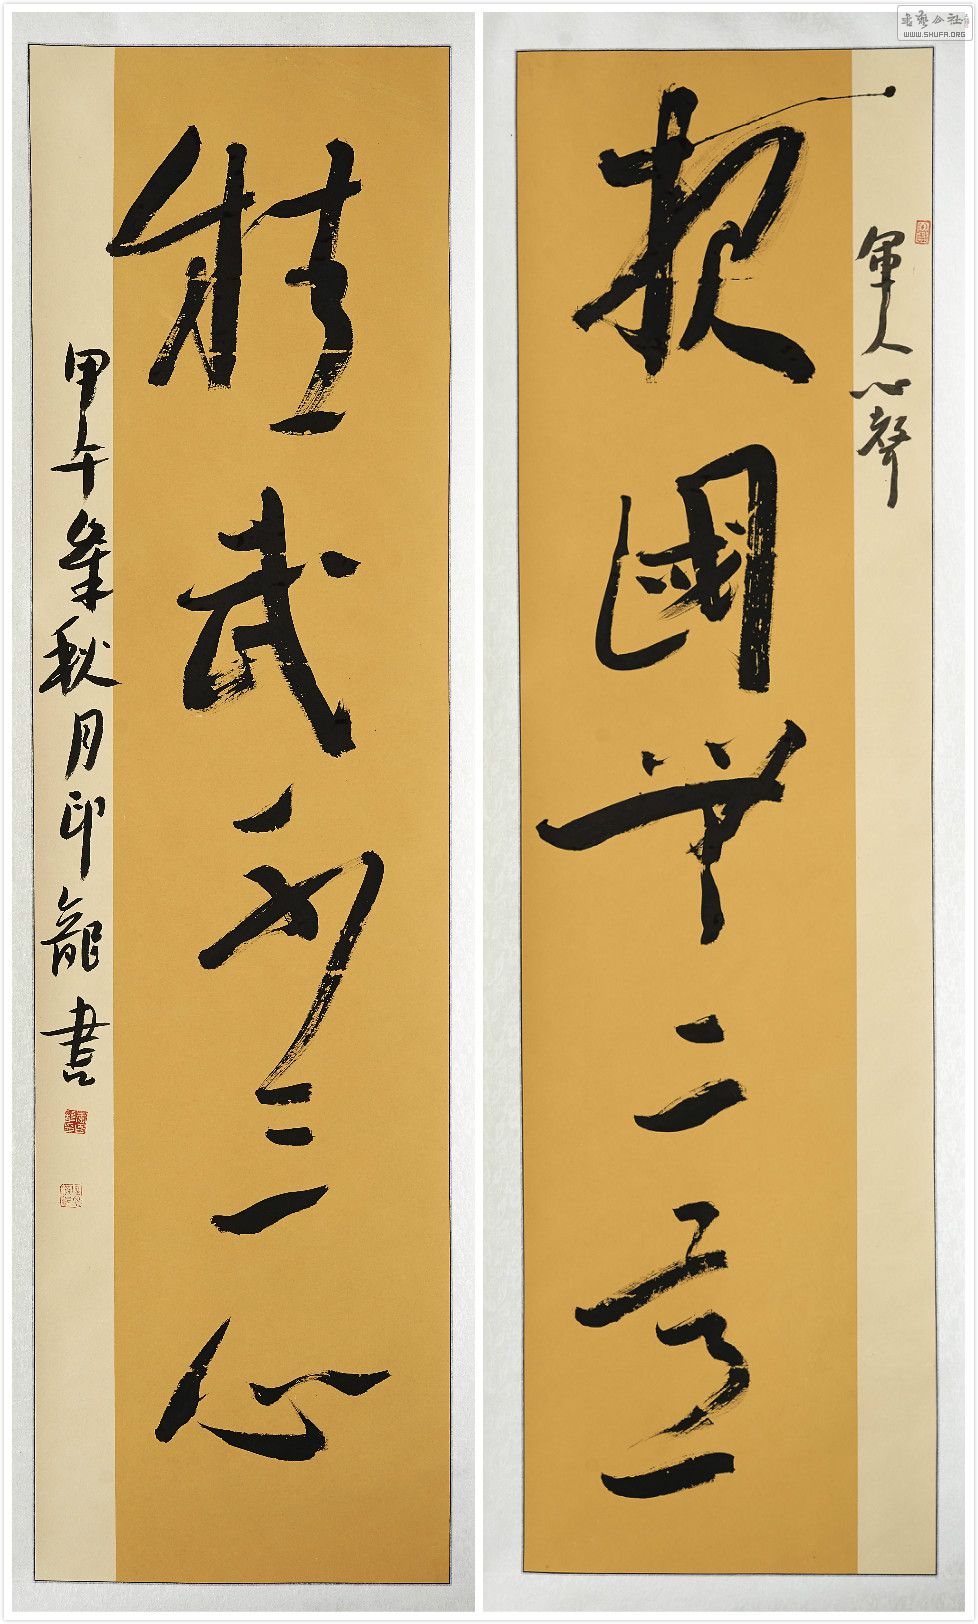 軍人心聲
報國無二意
精武三心
甲午年秋月印龍書
书艺公社
WWW.SHUFA.ORG